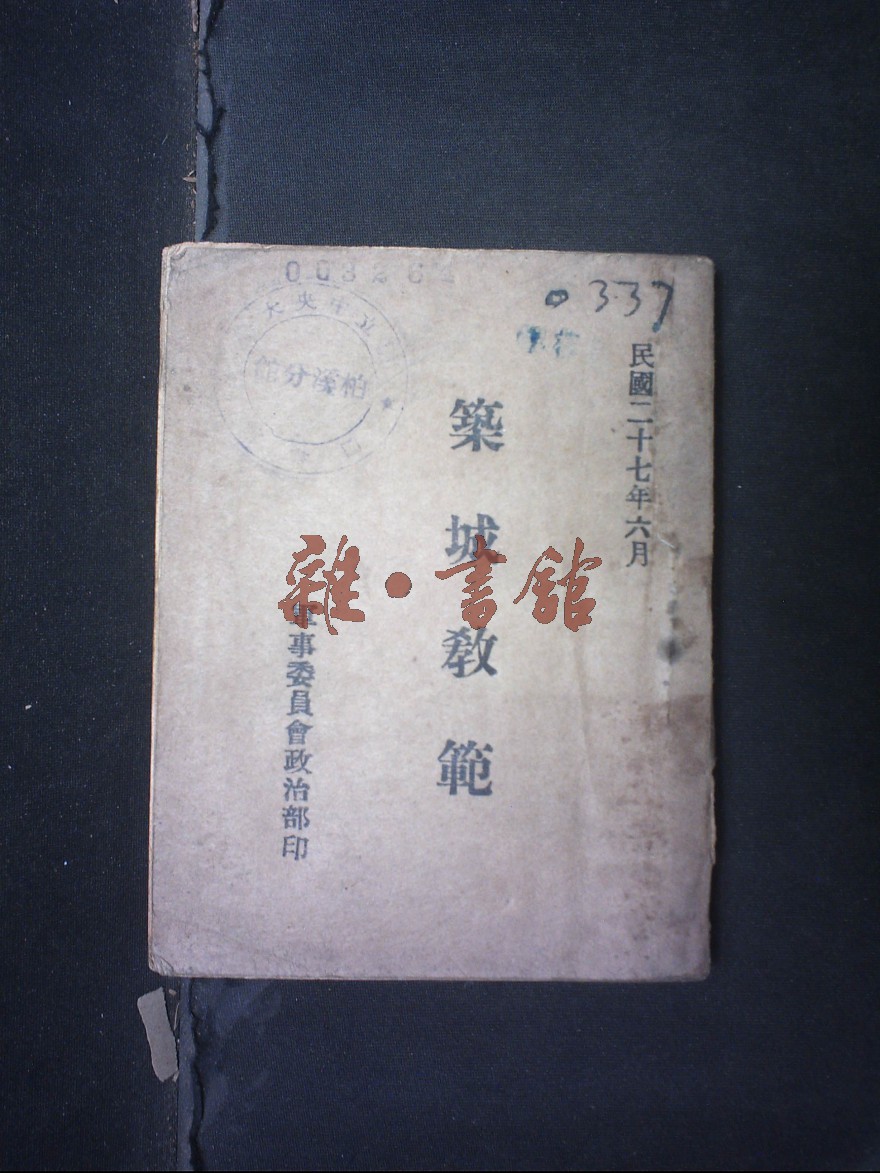 003262
0337
民國二十七年六月
築城教範
軍事委員會政治部印
柏溪分館
立中央大
雜·書館